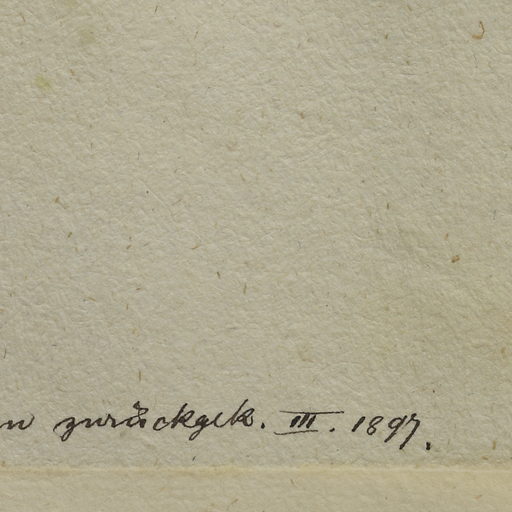 zurückgek. III. 1897.